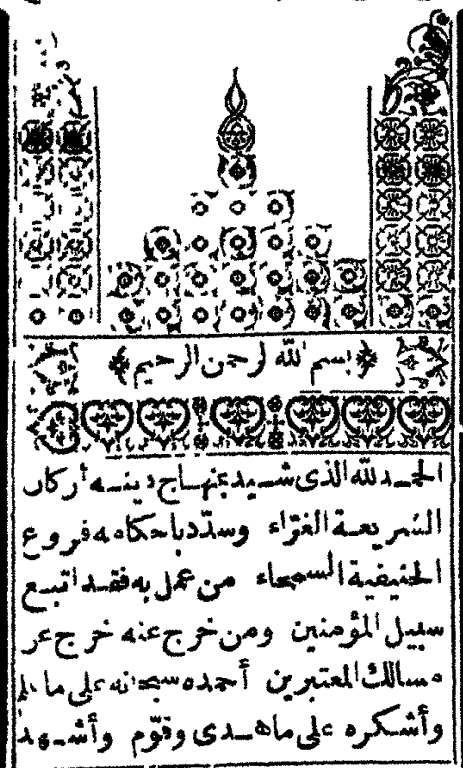 ﴿بسم الله الرحمن الرحيم﴾
الحمد لله الذى شيد بمنهاج دينه أركان
الشريعة الغراء وسدّد باحكامه فروع
الحنيفية السمحاء من عمل به فقد اتبع
سبيل المؤمنين ومن خرج عنه خرج عن
مسالك المعتبرين أحمده سبحانه على ما
وأشكره على ما هدى وقوّم وأشهد